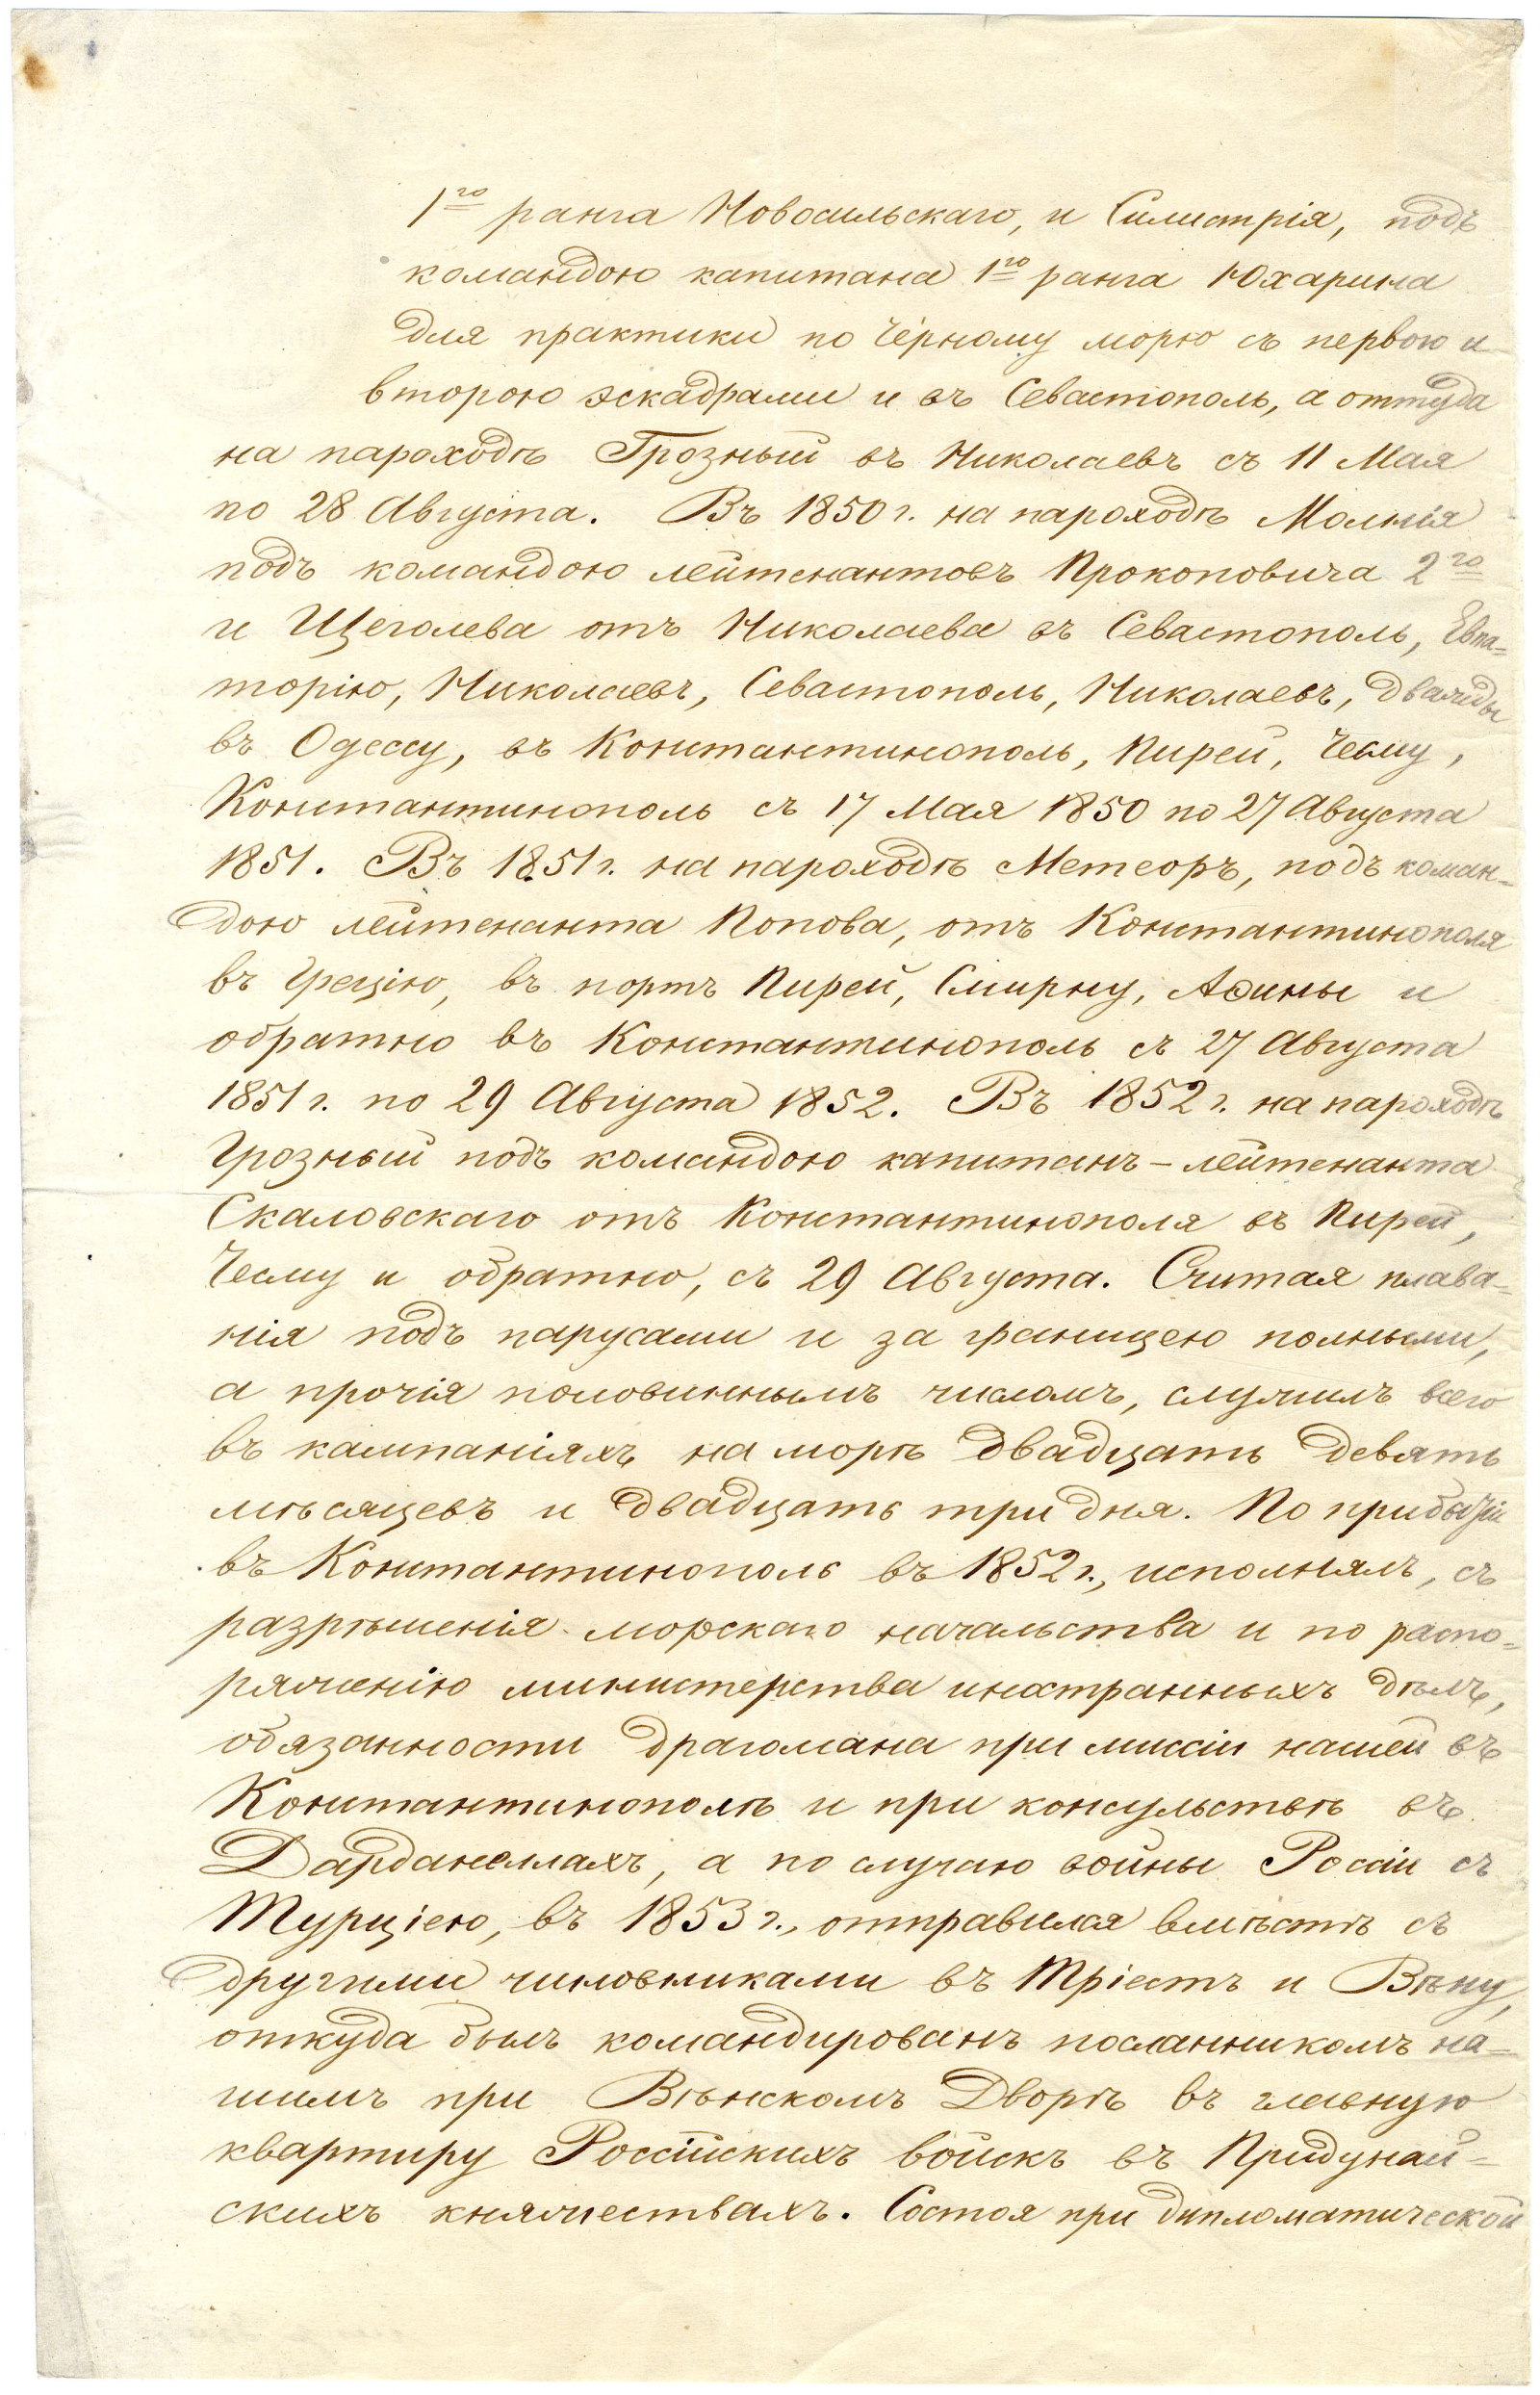 1го ранга Новосильскаго, и Силистрія, подъ
командою капитана 1го ранга Юхарина
для практики по Чёрному морю съ первою и
второю эскадрами и въ Севастополь, а оттуда
на пароходѣ Грозный въ Николаевъ съ 11 Мая
по 28 Августа. Въ 1850 г. на пароходѣ Молнія
подъ командою лейтенантовъ Прокоповича 2го
и Щеголева отъ Николаева въ Севастополь, Евпа=
торію, Николаевъ, Севастополь, Николаевъ, дважды
въ Одессу, въ Константинополь, Пирей, Чесму,
Константинополь съ 17 Мая 1850 по 27 Августа
1851. Въ 1851 г. на пароходѣ Метеоръ, подъ коман=
дою лейтенанта Попова, отъ Константинополя
въ Грецію, въ портъ Пирей, Смирну, Аѳины и
обратно въ Константинополь съ 27 Августа
1851 г. по 29 Августа 1852. Въ 1852 г. на пароходѣ
Грозный подъ командою капитанъ-лейтенанта
Скаловскаго отъ Константинополя въ Пирей,
Чесму и обратно, съ 29 Августа. Считая плава=
нія подъ парусами и за границею полными,
а прочія половиннымъ числомъ, служилъ всего
въ кампаніяхъ на морѣ двадцать девять
мѣсяцевъ и двадцать три дня. По прибытіи
въ Константинополь въ 1852 г., исполнялъ, съ
разрѣшенія морскаго начальства и по распо=
ряженію министерства иностранныхъ дѣлъ,
обязанности драгомана при миссіи нашей въ
Константинополѣ и при консульствѣ въ
Дарданеллахъ, а по случаю войны Россіи съ
Турціею, въ 1853 г., отправился вмѣстѣ съ
другими чиновниками въ Тріестъ и Вѣну,
откуда былъ командированъ посланникомъ на=
шимъ при Вѣнскомъ Дворѣ въ главную
квартиру Россійскихъ войскъ въ Придунай=
скихъ княжествахъ. Состоя при дипломатической